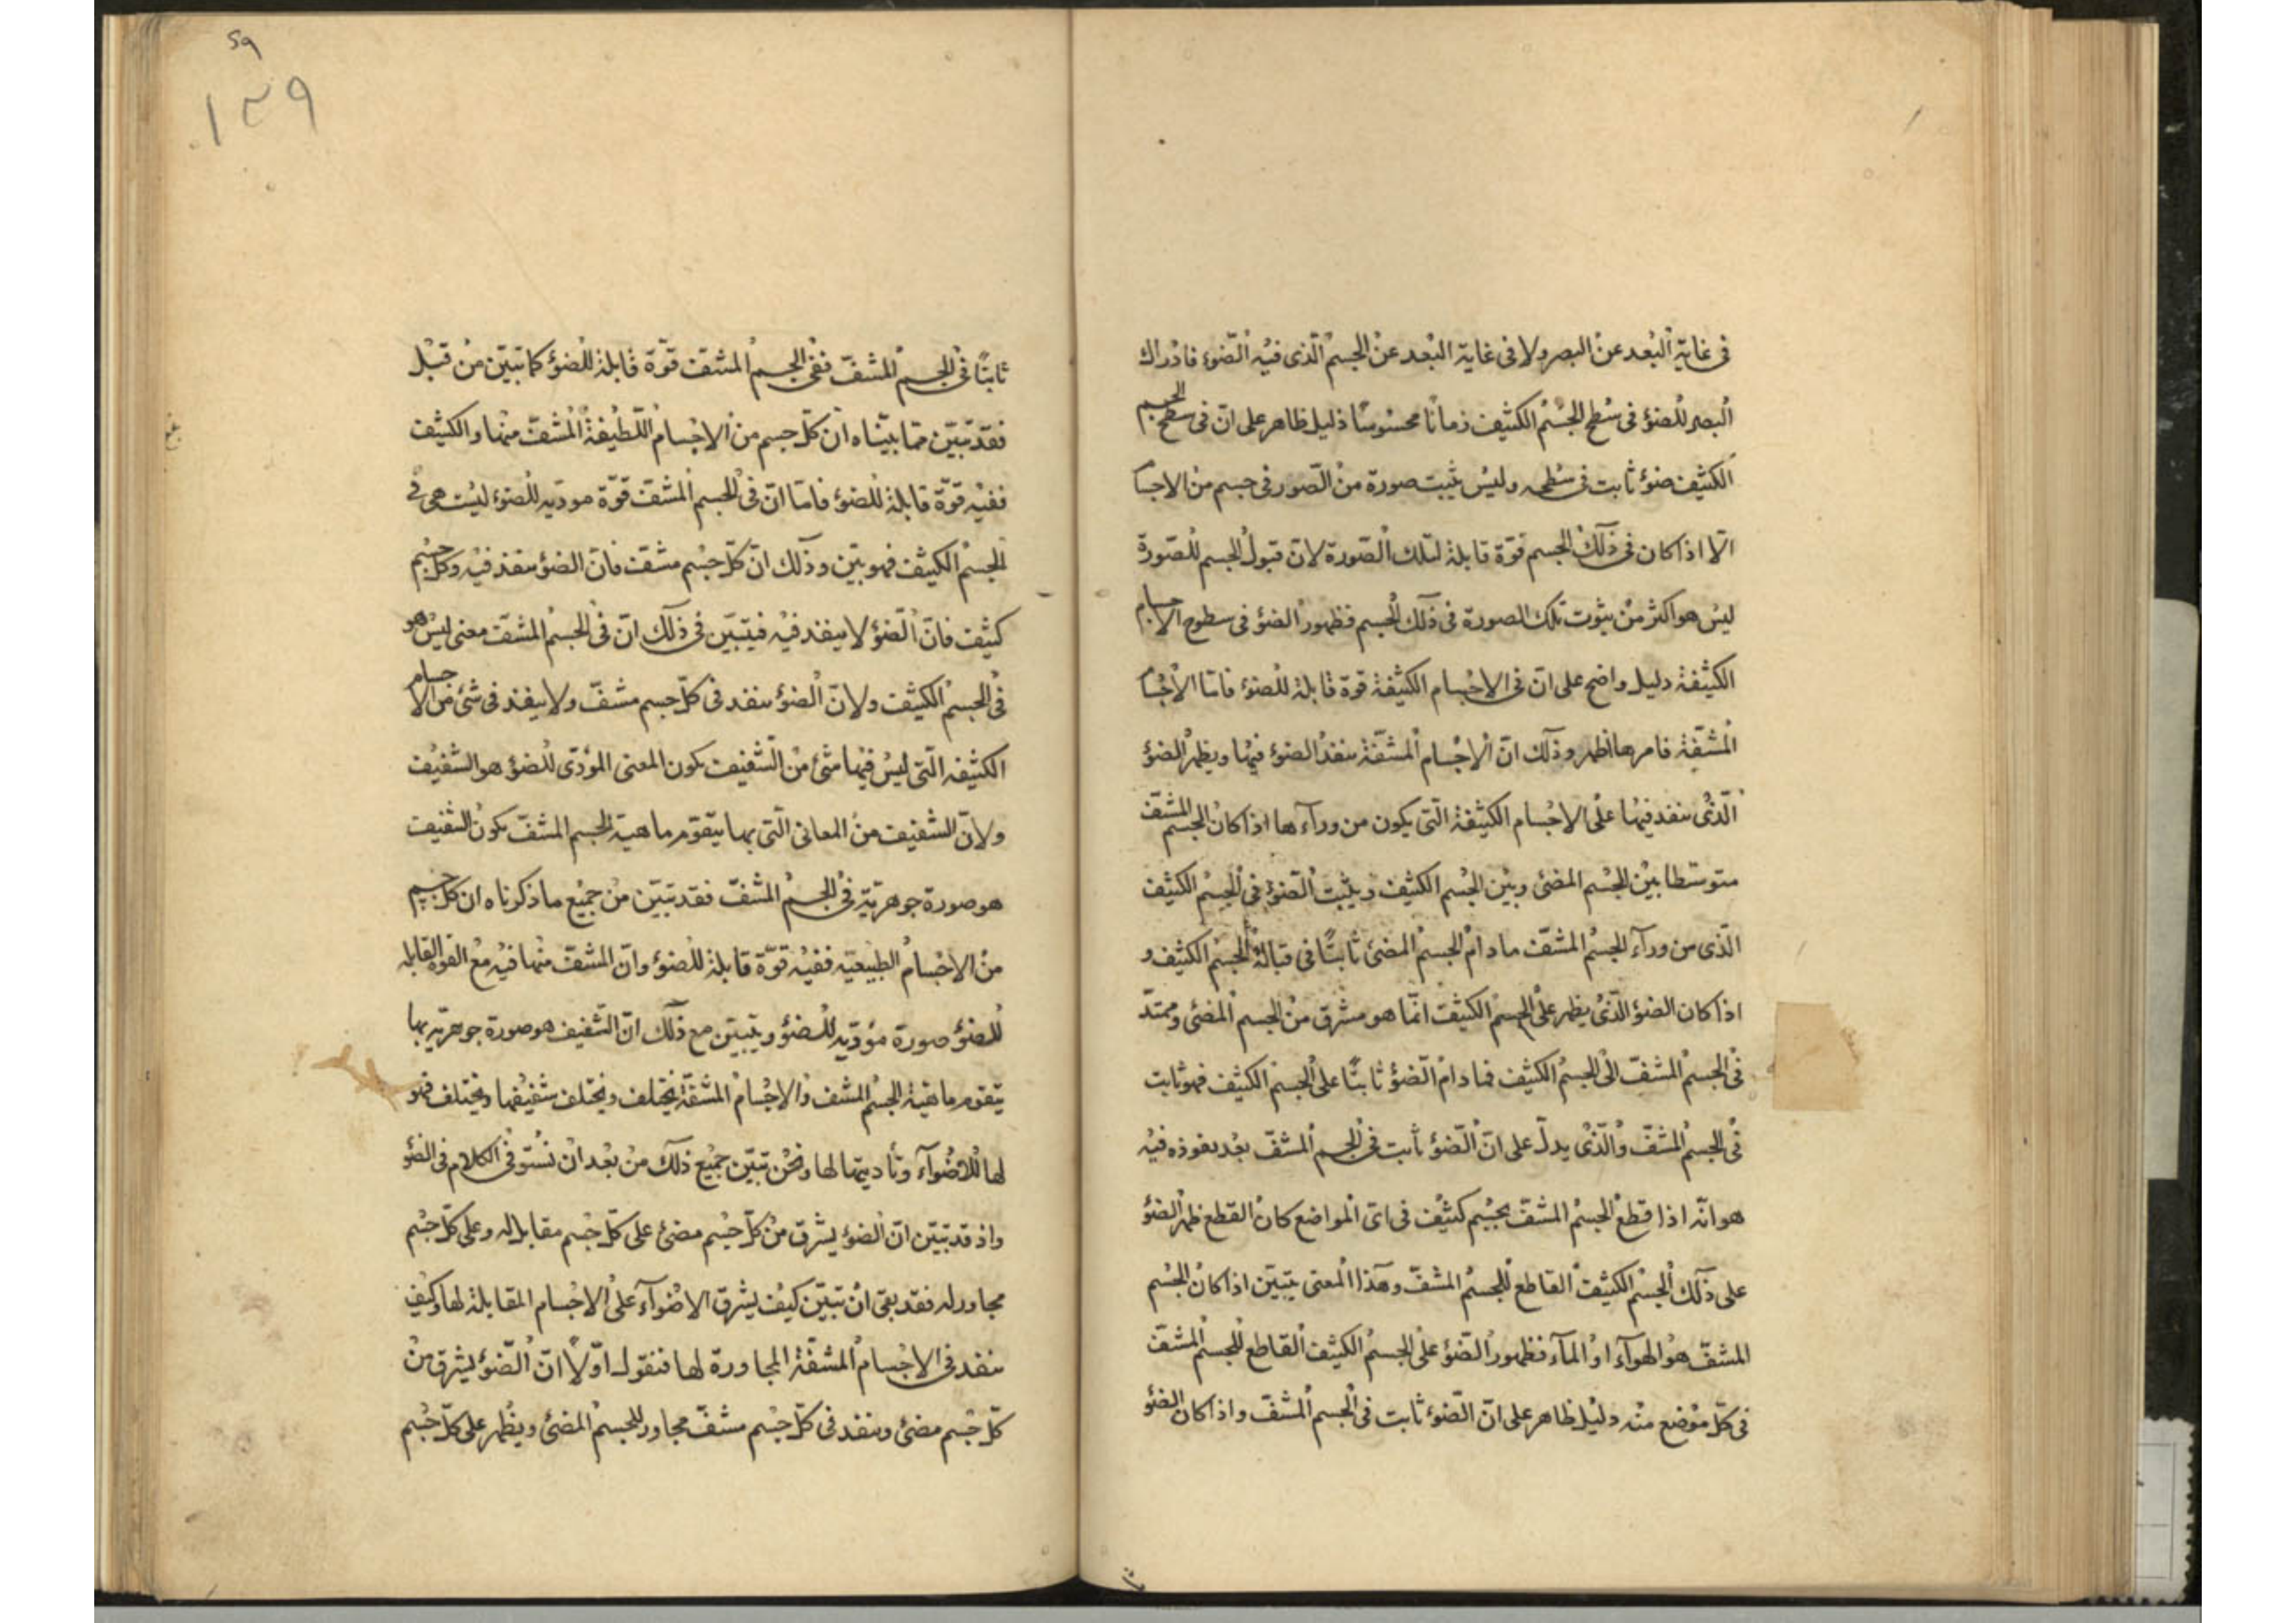 فى غاية البعد عن البصر ولا فى غاية البعد عن الجسم الّذى فيه الضّوء فادراك
البصر للضوء فى سطح الجسم الكثيف زمانًا محسوسًا دليل ظاهر على انّ فى سطح الجسم
الكثيف ضوءً ثابت فى سطحه وليس يثبت صورة من الصّور فى جسم من الاجسا
الّا اذا كان فى ذلك الجسم قوّة قابلة لتلك الصّورة لانّ قبول الجسم للصّورة
ليس هو اكثر من ثبوت تلك الصورة فى ذلك الجسم فظهور الضوء فى سطوح الاجسام
الكثيفة دليل واضح على انّ فى الاجسام الكثيفة قوة قابلة للضوء فامّا الاجسا
المشفّة فامرها اظهر وذلك انّ الاجسام المشفّة ينفذ الضوء فيها ويظهر الضوء
الّذى ينفذ فيها على الاجسام الكثيفة الّتى يكون من ورآءها اذا كان الجسم المشفّ
متوسّطا بين الجسم المضئ وبين الجسم الكثيف ويثبت الضّوء فى الجسم الكثيف
الّذى من ورآء الجسم المشفّ ما دام الجسم المضئ ثابتًا فى قبالة الجسم الكثيف و
اذا كان الضوء الّذى يظهر على الجسم الكثيف انّما هو مشرق من الجسم المضئ وممتدّ
فى الجسم المشفّ الى الجسم الكثيف فما دام الضّوء ثابتًا على الجسم الكثيف فهو ثابت
فى الجسم المشفّ والّذى يدلّ على انّ الضّوء ثابت فى الجسم المشفّ بعد نفوذه فيه
هو انّه اذا قطع الجسم المشفّ بجسم كثيف فى اىّ المواضع كان القطع ظهر الضوء
على ذلك الجسم الكثيف القاطع للجسم المشفّ وهذا المعنى يتبيّن اذا كان الجسم
المشفّ هو الهوآء او المآء فظهور الضّوء على الجسم الكثيف القاطع للجسم المشفّ
فى كلّ موضع منه دليل ظاهر على انّ الضّوء ثابت فى الجسم المشفّ واذا كان الضوء
ثا
٥٩
١٣٩
ثابتًا فى الجسم المشفّ ففى الجسم المشفّ قوّة قابلة للضوء كما تبيّن من قبل
بلغ
فقد تبيّن ممّا بيّناه انّ كلّ جسم من الاجسام اللّطيفة المشفّ منها والكثيف
ففيه قوّة قابلة للضوء فامّا انّ فى الجسم المشفّ قوّة مودّيه للضوء ليست هى فى
الجسم الكثيف فهو بيّن وذلك انّ كلّ جسم مشفّ فانّ الضوء ينفذ فيه وكلّ جسم
كثيف فانّ الضّوء لا ينفذ فيه فيتبيّن فى ذلك انّ فى الجسم المشفّ معنى ليس هو
فى الجسم الكثيف ولانّ الضوء ينفذ فى كلّ جسم مشفّ ولا ينفذ فى شئ من الاجسام
الكثيفه الّتى ليس فيها شئ من الشفيف يكون المعنى المؤدّى للضوء هو الشفيف
ولانّ الشفيف من المعانى الّتى بها يتقوّم ماهية الجسم المشفّ يكون الشفيف
هو صورة جوهريّة فى الجسم المشفّ فقد تبيّن من جميع ما ذكرناه ان كلّ جسم
من الاجسام الطبيعيّه ففيه قوّة قابلة للضوء وانّ المشفّ منها فيه مع القوة القابله
للضوء صورة مؤدّيه للضوء ويتبيّن مع ذلك انّ الشفيف هو صورة جوهريّه بها
يتقوم ماهيّة الجسم المشف والاجسام المشفّة يختلف ويختلف شفيفها ويختلف قبو
لها للاضوآء وتأديتها لها ونحن تبيّن جميع ذلك من بعد ان نستوفى الكلام فى الضوء
واذ قد تبيّن انّ الضوء يشرق من كلّ جسم مضئ على كلّ جسم مقابل له وعلى كلّ جسم
مجاور له فقد بقى ان تبيّن كيف يشرق الاضوآء على الاجسام المقابلة لها وكيف
ينفد فى الاجسام المشفّة المجاورة لها فنقول اوّلًا انّ الضّوء يشرق من
كلّ جسم مضئ وينفد فى كلّ جسم مشفّ مجاور للجسم المضئ ويظهر على كلّ جسم